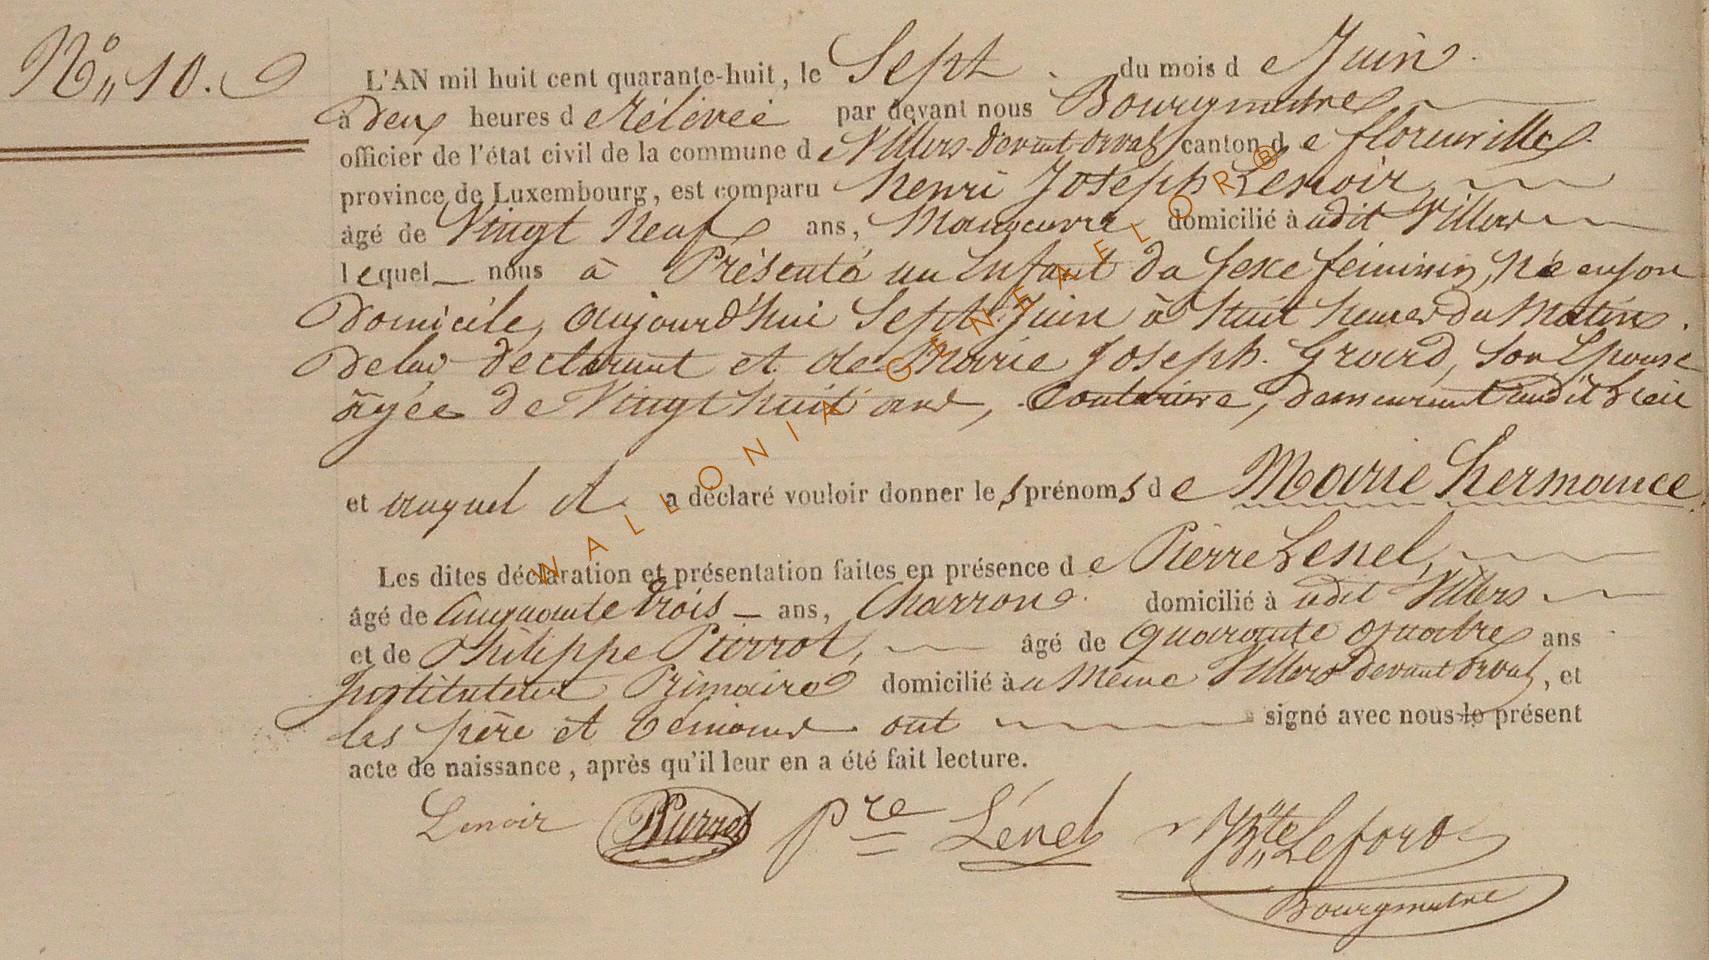 N° 10.
L'AN mil huit cent quarante-huit, le Sept du mois de Juin
à deux heures de Rélévée par devant nous Bourgmestre
officier de l'état civil de la commune de Villers devant orval canton de florenville
province de Luxembourg, est comparu henri Joseph Lenoir
âgé de Vingt Neuf ans, Manoeuvre domicilié à udit Villers
lequel nous à Présenté un Enfant du Sexe féminin, né en son
Domicile, aujourd'hui Sept Juin à huit heures du Matin.
de lui déclarant et de Marie Joseph Grard, son Epouse
âgée de Vingt huit ans, Couturière, demeurant audit Lieu
et auquel il a déclaré vouloir donner les prénoms de Marie hermance
Les dites déclaration et présentation faites en présence de Pierre Lenel,
âgé de Cinquante trois ans, Charron domicilié à udit Villers
et de Philippe Pierrot, âgé de quarante quatre ans
Instituteur Primaire domicilié à u Même Villers devant orval, et
les père et témoins ont signé avec nous le présent
acte de naissance, après qu'il leur en a été fait lecture.
Lenoir Pierrot Pre Lénel Bte Lefort
Bourgmestre
WALLONIA GENEALORO ®